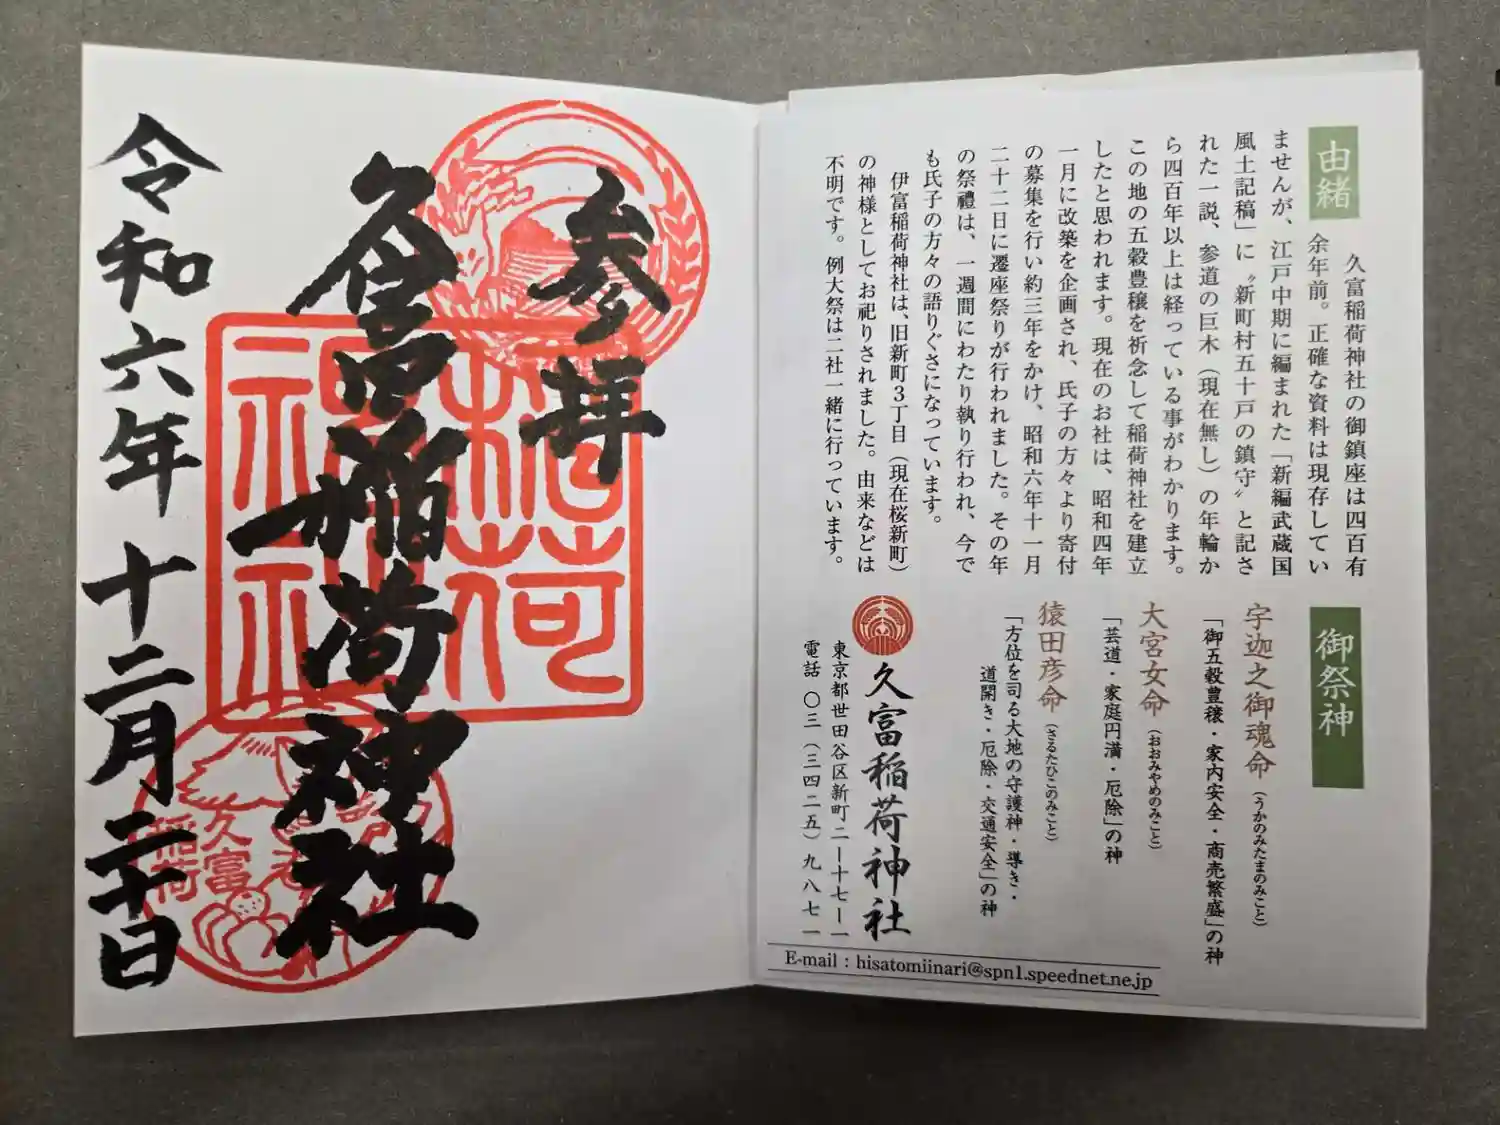 由緒
久富稲荷神社の御鎮座は四百有
余年前。正確な資料は現存してい
ませんが、江戸中期に編まれた「新編武蔵国
風土記稿」に〝新町村五十戸の鎮守〟と記さ
れた一説、参道の巨木（現在無し）の年輪か
ら四百年以上は経っている事がわかります。
この地の五穀豊穣を祈念して稲荷神社を建立
したと思われます。現在のお社は、昭和四年
一月に改築を企画され、氏子の方々より寄付
の募集を行い約三年をかけ、昭和六年十一月
二十二日に遷座祭りが行われました。その年
の祭禮は、一週間にわたり執り行われ、今で
も氏子の方々の語りぐさになっています。
伊富稲荷神社は、旧新町３丁目（現在桜新町）
の神様としてお祀りされました。由来などは
不明です。例大祭は二社一緒に行っています。
御祭神
宇迦之御魂命（うかのみたまのみこと）
「御五穀豊穣・家内安全・商売繁盛」の神
大宮女命（おおみやめのみこと）
「芸道・家庭円満・厄除」の神
猿田彦命（さるたひこのみこと）
「方位を司る大地の守護神・導き・
道開き・厄除・交通安全」の神
久富稲荷神社
東京都世田谷区新町二ー十七ー一
電話 〇三（三四二五）九八七一
E-mail：hisatomiinari@spn1.speednet.ne.jp
参拝
久富稲荷神社
令和六年十二月二十日
稲荷
神社
久富
稲荷